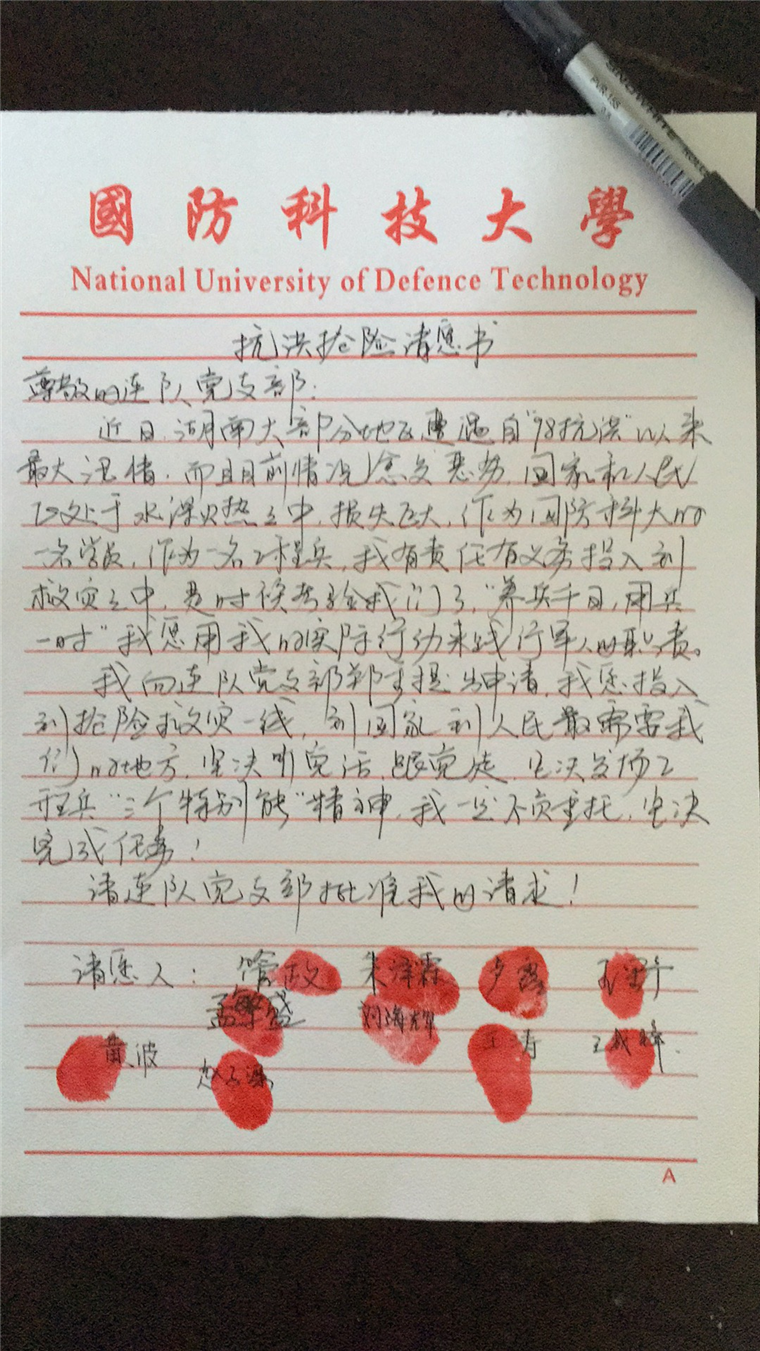 國防科技大學
National University of Defence Technology
抗洪抢险请愿书
尊敬的连队党支部：
近日，湖南大部分地区遭遇自"98抗洪"以来
最大汛情，而且目前情况愈发恶劣，国家和人民
正处于水深火热之中，损失巨大，作为国防科大的
一名学员，作为一名工程兵，我有责任有义务投入到
救灾之中，是时候考验我们了，"养兵千日，用兵
一时"我愿用我的实际行动来践行军人的职责。
我向连队党支部郑重提出申请，我愿投入
到抢险救灾一线，到国家到人民最需要我
们的地方，坚决听党话，跟党走，坚决发扬工
程兵"三个特别能"精神，我一定不负重托，坚决
完成任务！
请连队党支部批准我的请求！
请愿人：管政 朱泽霖 卢
孟繁盛 刘海辉
黄波 赵 王涛 王
A